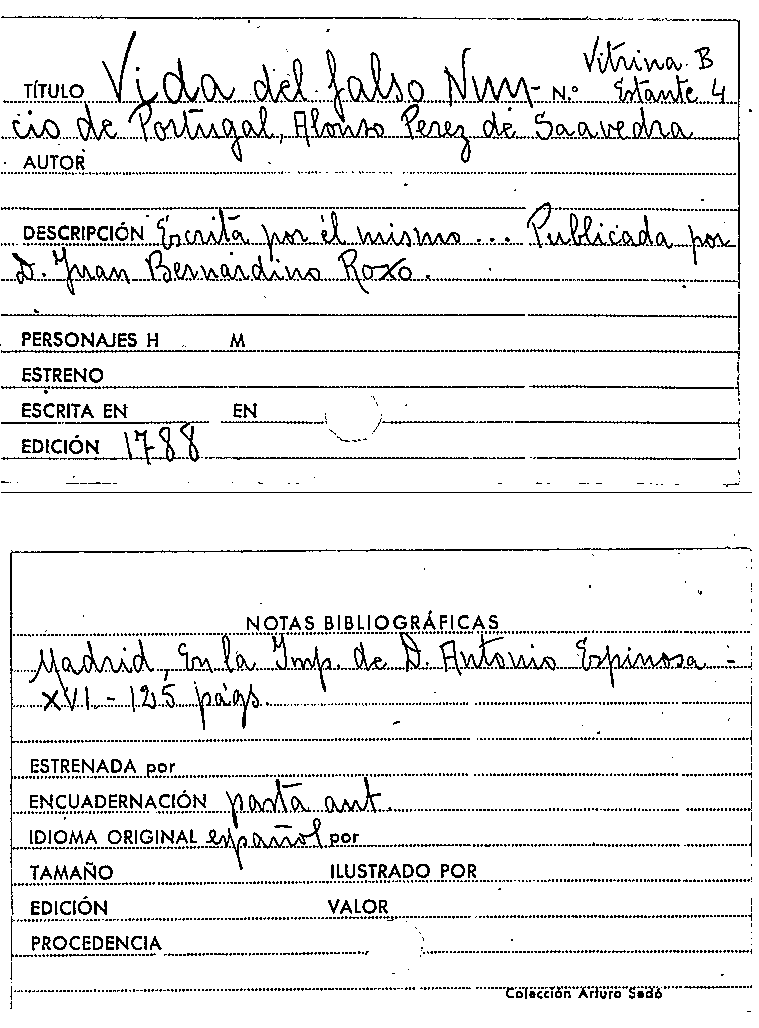 Vitrina B
TÍTULO Vida del falso Nun- N.º Estante 4
cio de Portugal, Alonso Perez de Saavedra
AUTOR
DESCRIPCIÓN Escrita por él mismo... Publicada por
D. Juan Bernardino Roxo.
PERSONAJES H M
ESTRENO
ESCRITA EN EN
EDICIÓN 1788
NOTAS BIBLIOGRÁFICAS
Madrid, En la Imp. de D. Antonio Espinosa -
XVI - 125 págs.
ESTRENADA por
ENCUADERNACIÓN pasta ant.
IDIOMA ORIGINAL español por
TAMAÑO ILUSTRADO POR
EDICIÓN VALOR
PROCEDENCIA
Colección Arturo Sedó